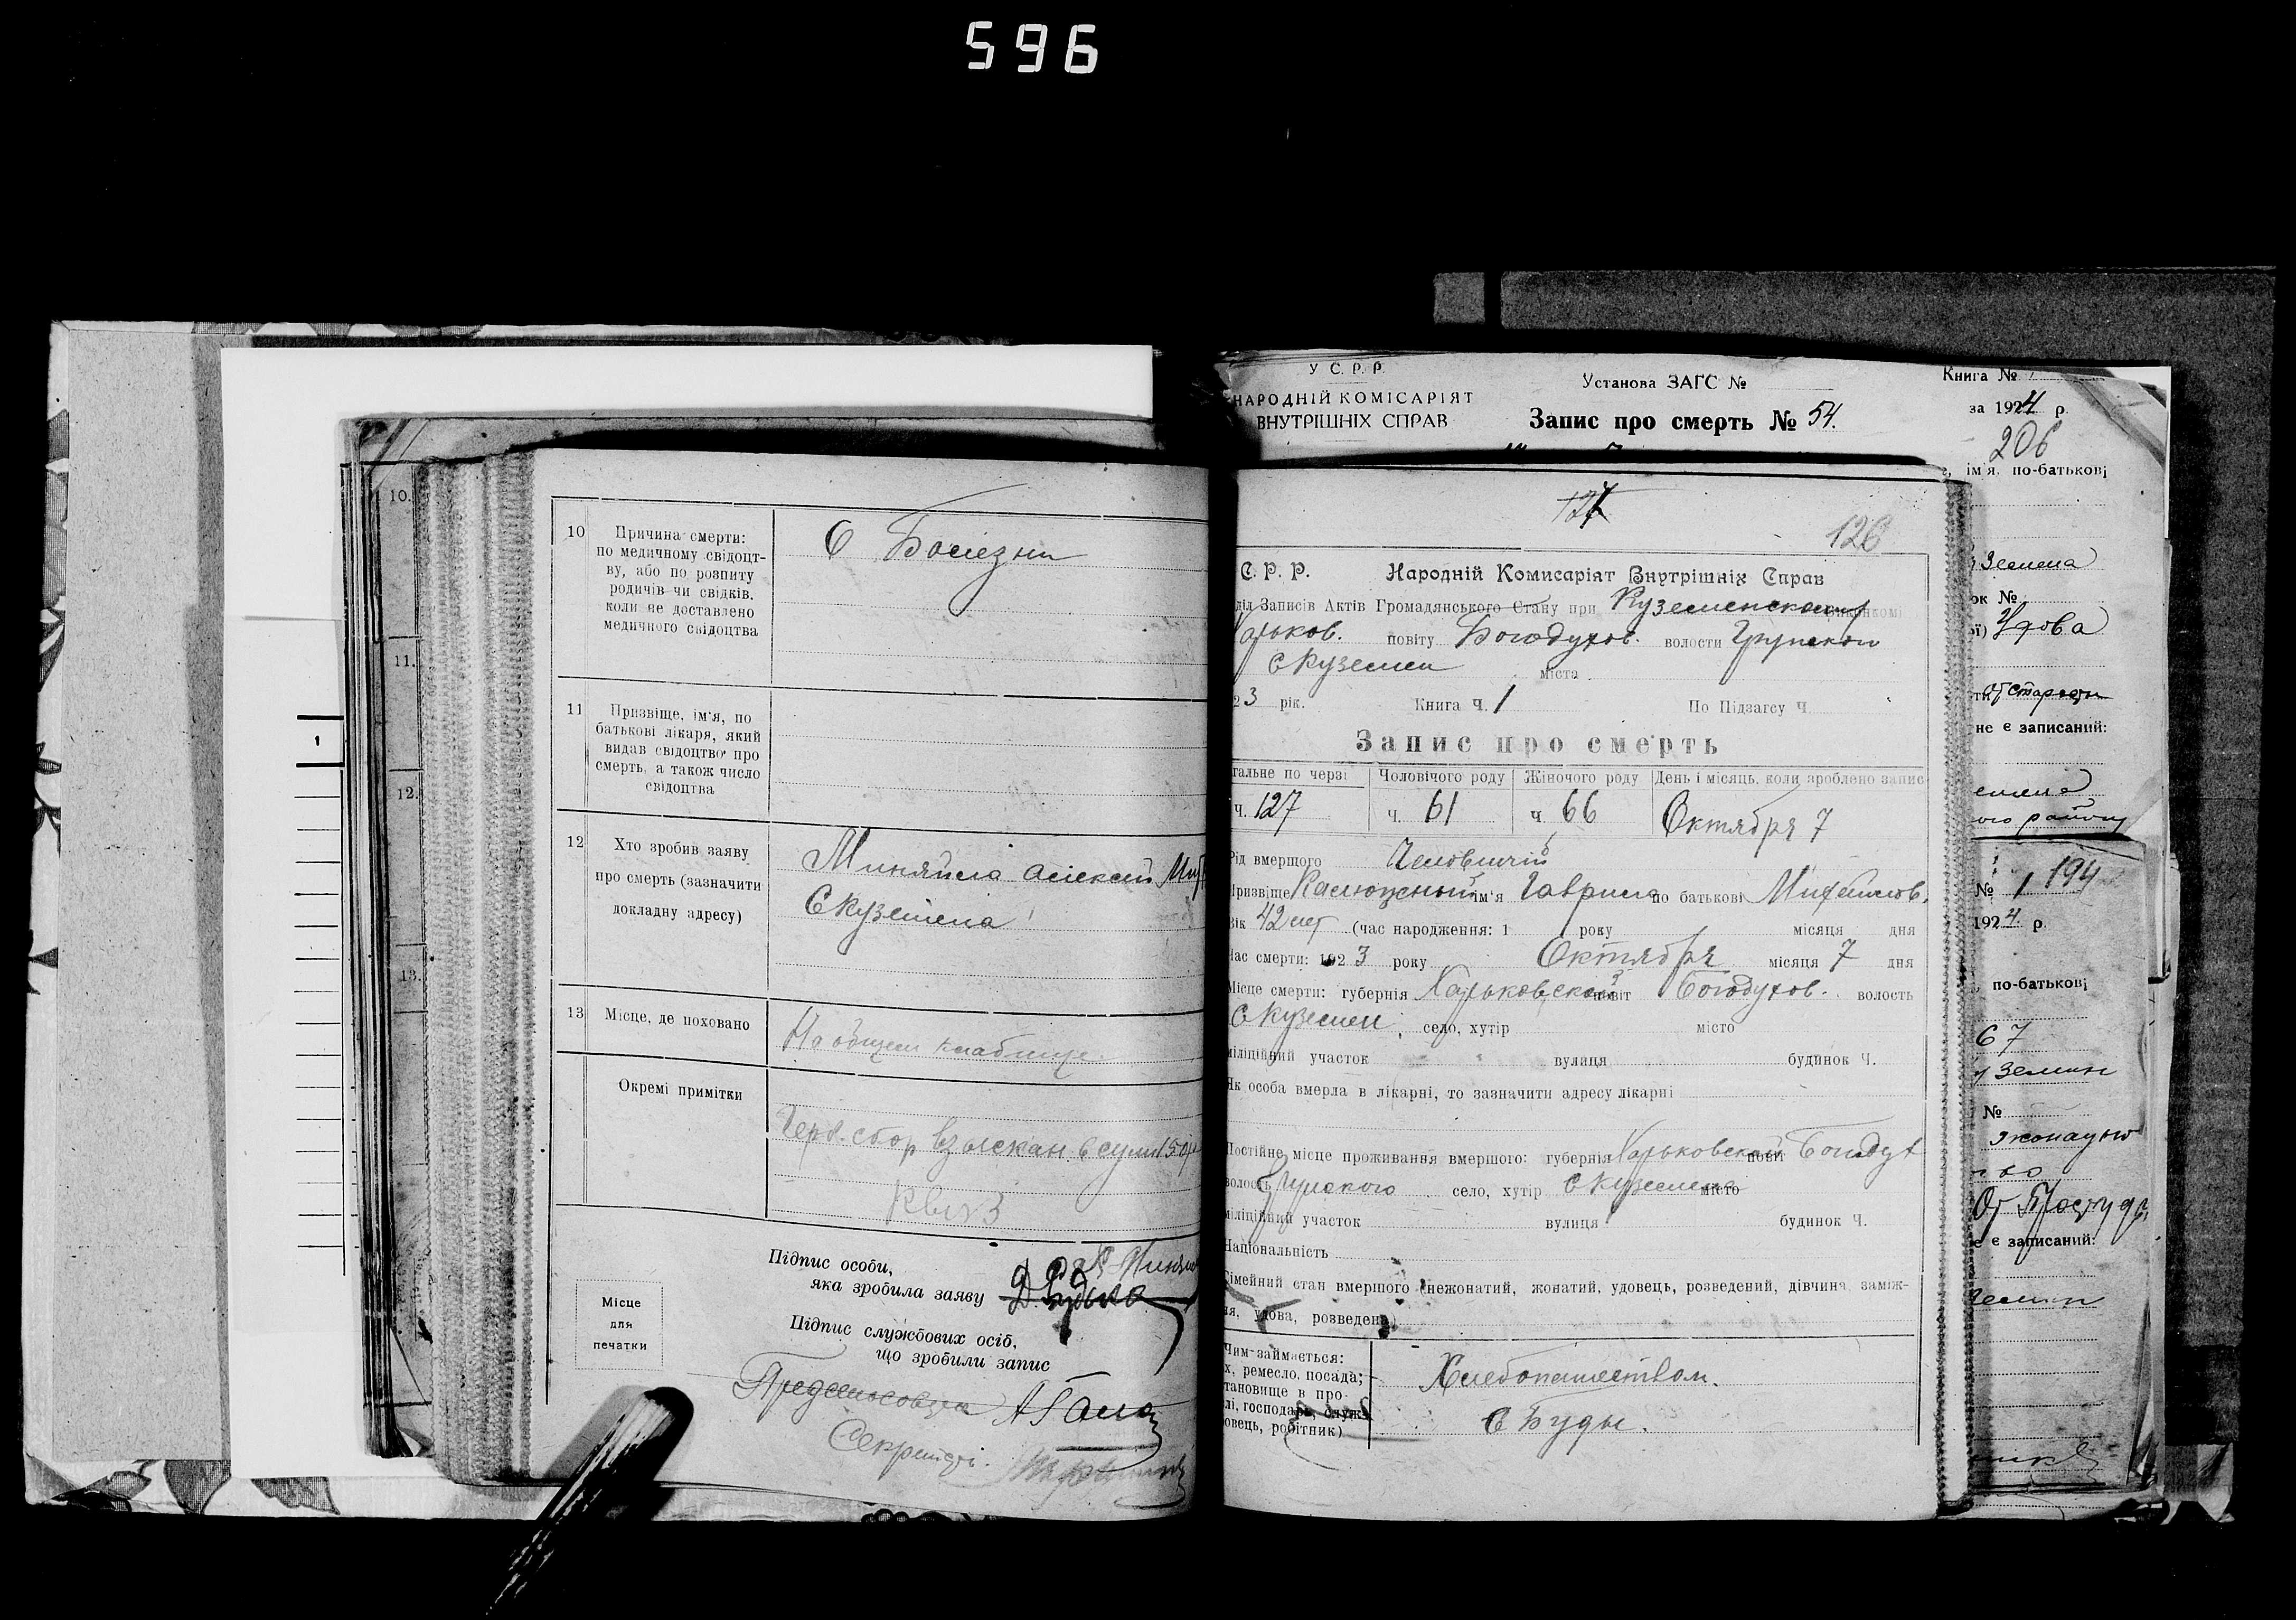 596
10
Причина смерти:
по медичному свідоцт-
ву, або по розпиту
родичів чи свідків,
коли не доставлено
медичного свідоцтва
С Болезни
11
Призвіще, ім'я, по
батькові лікаря, який
видав свідоцтво про
смерть, а також число
свідоцтва
12
Хто зробив заяву
про смерть (зазначити
докладну адресу)
Миняйла Алексей
С Куземена
13
Місце, де поховано
На общем кладбище.
Окремі примітки
Герб. сбор взыскан в сум 150р
Підпис особи,
яка зробила заяву
Місце
для
печатки
Підпис службових осіб,
що зробили запис
Секретарь
10.
11.
12.
13.
У С. Р. Р.
НАРОДНІЙ КОМІСАРІЯТ
ВНУТРІШНІХ СПРАВ
Установа ЗАГС №
Запис про смерть № 54.
Книга №
за 1924 р.
206
ім'я, по-батькові
127
126
С. Р. Р. Народній Комисаріят Внутрішніх Справ
діл Записів Актів Громадянського Стану при Куземенском
Харьков. повіту Богодухов. волости Грунской
С Куземен міста
23 рік. Книга Ч. 1 По Підзагсу Ч
Запис про смерть
гальне по черзі Чоловічого роду Жіночого роду День і місяць, коли зроблено запис
ч. 127 ч. 61 ч. 66 Октября 7
Рід вмершого
Призвіще Калюжный ім'я Гаврила по батькові Михайлов.
Вік 42 лет (час народження: 1 року місяця дня
Час смерти: 1923 року Октября місяця 7 дня
Місце смерти: губернія Харьковской повіт Богодухов. волость
С Куземен село, хутір місто
міліційний участок вулиця будинок Ч.
Як особа вмерла в лікарні, то зазначити адресу лікарні
Постійне місце проживання вмершого: губернія Харьковской повіт Богодух
волость Грунского село, хутір С Куземена місто
міліційний участок вулиця будинок Ч.
Національність
Сімейний стан вмершого (нежонатий, жонатий, удовець, розведений, дівчина, заміж-
ня, удова, розведена)
Чим займається:
х, ремесло, посада;
тановище в про-
лі, господарь, служ-
овець, робітник)
Хлебопашеством.
С Буды.
Удова
не є записаний:
№ 1 194
1924 р.
по-батькові
67
№
От Простуды
є записаний: